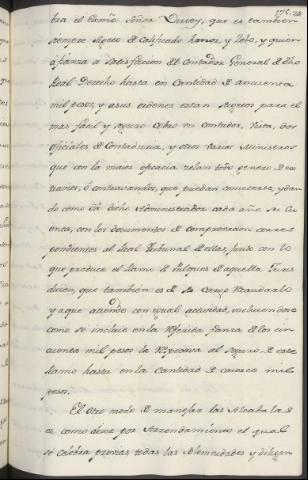 bra el mismo Señor Duvoy, que es tambien
siempre sujeto de calificado honor, y zelo, y quien
afianza a satisfaccion del Contador General de dho
Real Derecho hasta en Cantidad de cincuenta
mil pesos, y a sus ordenes estan sugetos para el
mas facil y seguro cobro un contador, Vista, dos
oficiales de Contaduria, y otros varios Ministros
que con la maior eficacia velan todo genero de ex
travios, o contravandos, que puedan cometerse, y dan
do como dicho Administrador cada año su Cu
enta, con los documentos de comprovacion corres
pondientes al Real Tribunal de ellas, junto con lo
que produce el Ramo de Pulques de aquella Juris
diccion, que tambien es de su cargo Recaudarlo
y a que atiende con igual actividad, incluiendose
como se incluie en la referida fianza de los cin
cuenta mil pesos la respectiva al seguro de este
Ramo hasta en la Cantidad de mil
pesos.
El otro modo de manejar las Alcabalas
es como dixe por Arrendamiento el qual
se celebra previas todas las solemnidades y diligen